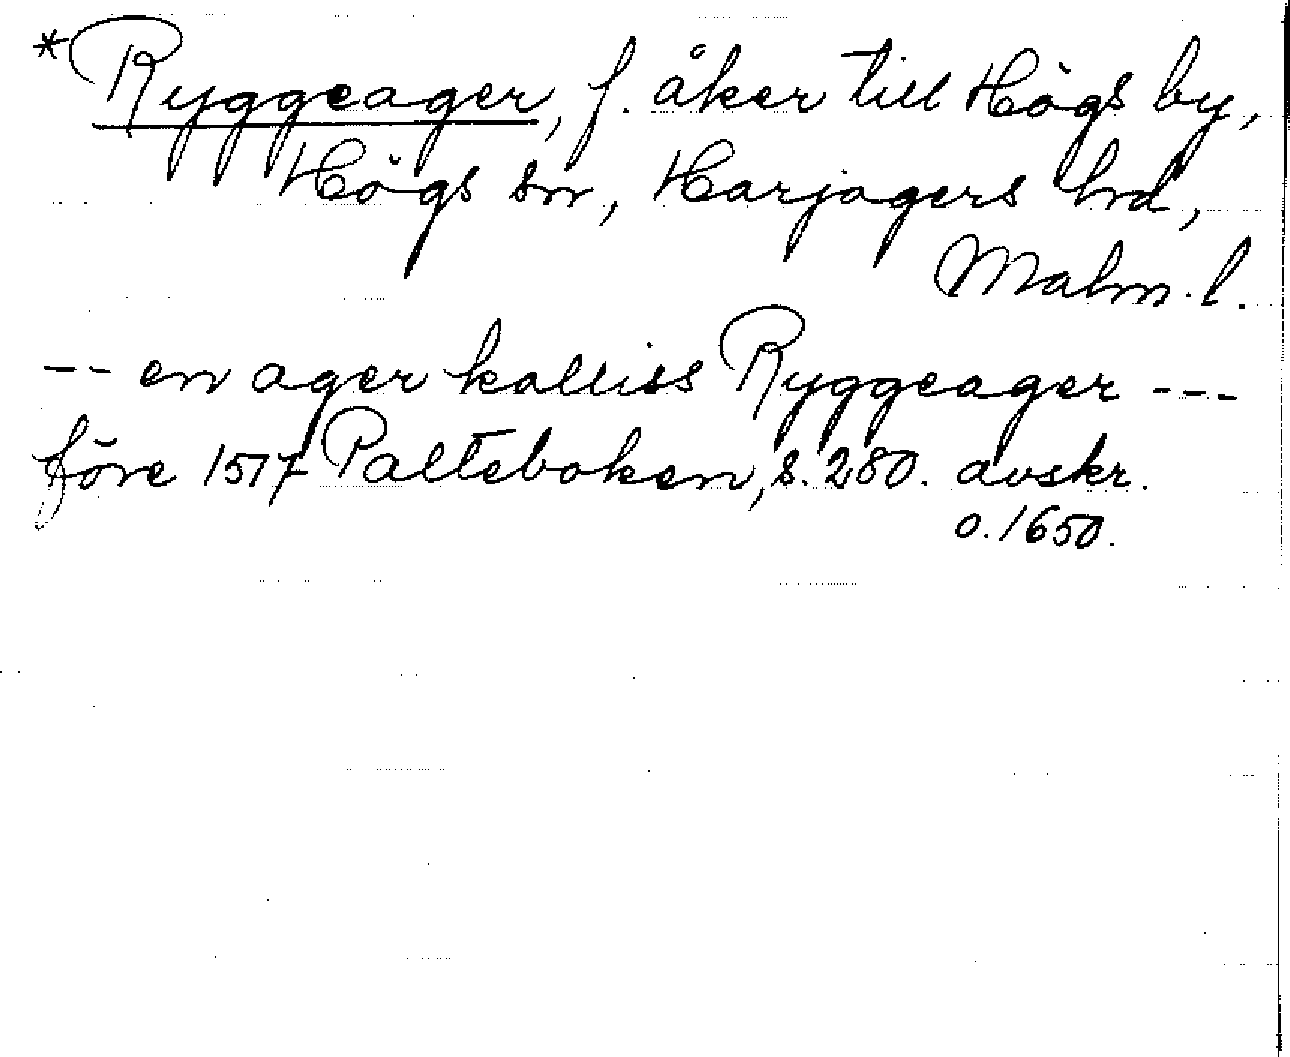 *Ryggeager, f. åker till Högs by,
Högs sn, Harjagers hrd,
Malm. l.
-- en ager kalliss Ryggeager ---
före 1517 Palteboken, s. 280. avskr.
o. 1650.